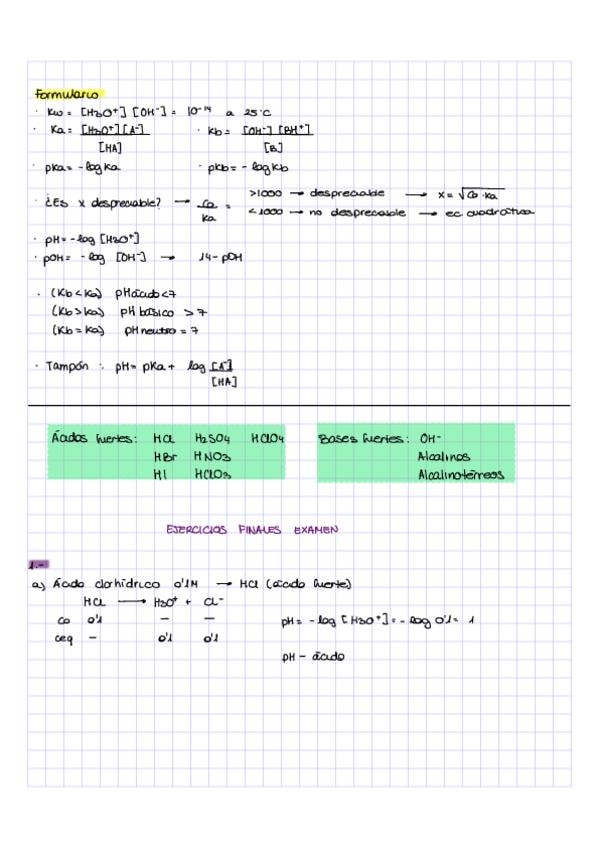 Formulario
· Kw = [H3O+] [OH-] = 10-14 a 25°C
· Ka = [H3O+][A-] / [HA] · Kb = [OH-] [BH+] / [B]
· pKa = -log Ka · pKb = -log Kb
· ¿Es x despreciable? → Co / Ka = >1000 → despreciable → x = √Co·Ka
<1000 → no despreciable → ec cuadrática
· pH = -log [H3O+]
· pOH = -log [OH-] → 14-pOH
· (Kb < Ka) pH ácido < 7
(Kb > Ka) pH básico > 7
(Kb = Ka) pH neutro = 7
· Tampón : pH = pKa + log [A-] / [HA]
Ácidos fuertes: HCl H2SO4 HClO4 Bases fuertes: OH-
HBr HNO3 Alcalinos
HI HClO3 Alcalinotérreos
EJERCICIOS FINALES EXAMEN
1.-
a) Ácido clorhídrico 0'1M → HCl (ácido fuerte)
HCl → H3O+ + Cl-
co 0'1 — — pH = -log [H3O+] = -log 0'1 = 1
ceq — 0'1 0'1
pH - ácido